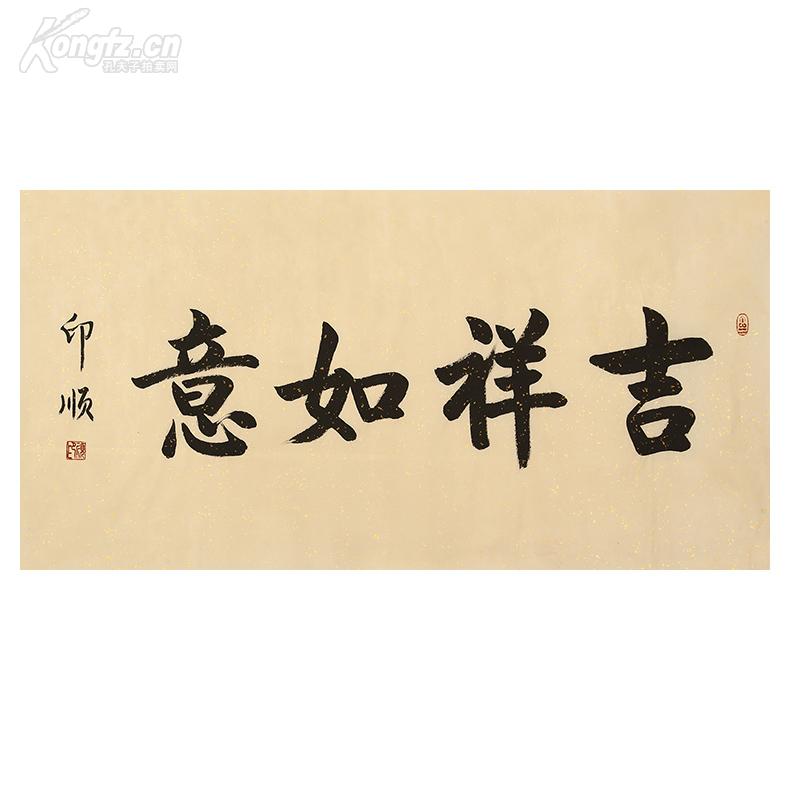 Kongfz.cn
孔夫子拍卖网
吉祥如意
印顺